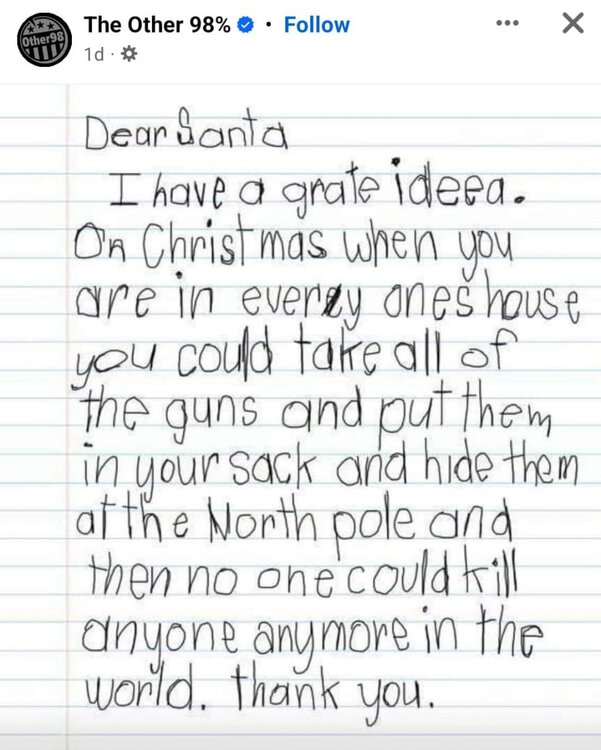 The Other 98% • Follow
Other98
1d ·
Dear Santa
I have a grate ideea.
On Christmas when you
are in everzy ones house
you could take all of
the guns and put them
in your sack and hide them
at the North pole and
then no one could kill
anyone anymore in the
world. thank you.